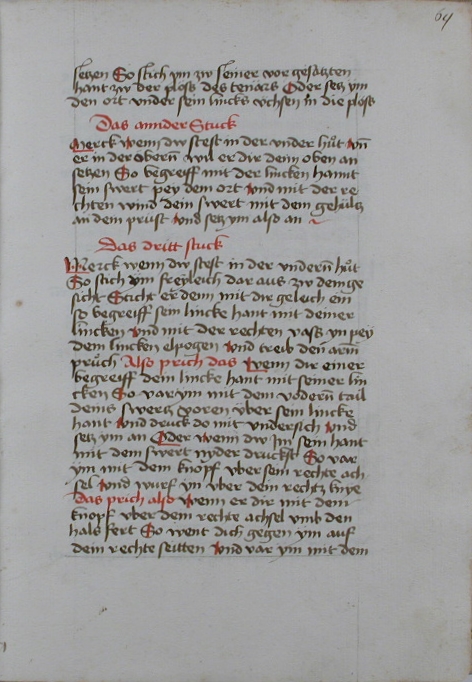 64
setzen So stich ym zw seiner vor gesatzten
hant zw der ploss des tenars Oder setz ym
den ort vnder sein lincks vchsen in die ploss
Das annder Stuck
Merck wenn dw stest in der vnder hůt vn̄
er in der obern̄ wil er dir dein oben an
setzen So begreiff mit der lincken hannt
sein swert pey dem ort vnd mit der re
chten wind dein swert mit dem gehültz
an dem prust vnd setz ym also an
Das dritt stuck
Merck wenn dw stest in der vndern̄ hůt
So stich ym freyleich dar aus zw dem ge
sicht Sticht er denn mit dir geleich ein
so begreiff sein lincke hant mit deiner
lincken vnd mit der rechten vass yn pey
dem lincken elpogen vnd treib den arm̄
prüch Also prich das Wenn dir einer
begreiff dein lincke hant mit seiner lin
cken So var ym mit dem vodern̄ tail
deins swertz voren vber sein lincke
hant vnd druck do mit vndersich vnd
setz ym an Oder wenn dw Im sein hant
mit dem swert nyder druckst So var
ym mit dem knopf vber sein rechte ach
sel vnd wurf yn vber dein rechtz knye
Das prich also Wenn er dir mit dem
knopf vber dem rechte achsel vmb den
hals fert So went dich gegen ym auf
dein rechte seitten vnd var ym mit dem